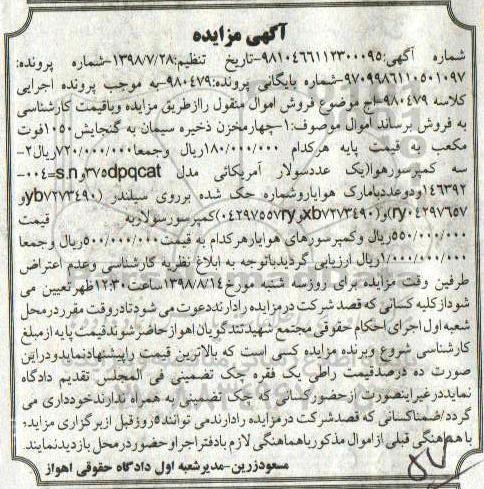 آگهی مزایده
شماره آگهی:۹۸۱۰۴۶۶۱۱۲۳۰۰۰۹۵-تاریخ تنظیم:۱۳۹۸/۷/۲۸-شماره پرونده:
۹۷۰۹۹۸۶۱۱۰۵۰۱۰۹۷-شماره بایگانی پرونده:۹۸۰۴۷۹-به موجب پرونده اجرایی
کلاسه ۹۸۰۴۷۹-اج موضوع فروش اموال منقول راازطریق مزایده وباقیمت کارشناسی
به فروش برساند اموال موصوف:۱-چهارمخزن ذخیره سیمان به گنجایش۱۰۵۰فوت
مکعب به قیمت پایه هرکدام ۱۸۰/۰۰۰/۰۰۰ریال وجمعا۷۲۰/۰۰۰/۰۰۰ریال۲-
سه کمپرسورهوا(یک عددسولار آمریکائی مدل s.n،۳۷۵dpqcat=۰۰۴-
۱۴۶۳۹۲)ودوعددبامارک هوایاروشماره حک شده برروی سیلندر (yb۷۲۷۳۴۹۰و
ry۰۴۲۹۷۶۵۷)و(xb۷۲۷۳۴۹۰،ry۰۴۲۹۷۵۵۷)کمپرسورسولاربه قیمت
۵۵۰/۰۰۰/۰۰۰ریال وکمپرسورهای هوایارهرکدام به قیمت۵۰۰/۰۰۰/۰۰۰ریال وجمعا
۱/۰۰۰/۰۰۰/۰۰۰ریال ارزیابی گردیدباتوجه به ابلاغ نظریه کارشناسی وعدم اعتراض
طرفین وقت مزایده برای روزسه شنبه مورخ۱۳۹۸/۸/۱۴ساعت۱۲:۳۰ظهرتعیین می
شوداز کلیه کسانی که قصدشرکت درمزایده رادارنددعوت می شودتادروقت مقرردرمحل
شعبه اول اجرای احکام حقوقی مجتمع شهیدتندگویان اهوازحاضرشوندقیمت پایه ازمبلغ
کارشناسی شروع وبرنده مزایده کسی است که بالاترین قیمت راپیشنهادنمایدودراین
صورت ده درصدقیمت راطی یک فقره چک تضمینی فی المجلس تقدیم دادگاه
نمایددرغیراینصورت ازحضورکسانی که چک تضمینی به همراه ندارندخودداری می
گردد/ضمناکسانی که قصدشرکت درمزایده رادارندمی توانند۵روزقبل ازبرگزاری مزایده
باهماهنگی قبلی ازاموال مذکورباهماهنگی لازم بادفتراجراوحضوردرمحل بازدیدنمایند
مسعودزرین-مدیرشعبه اول دادگاه حقوقی اهواز